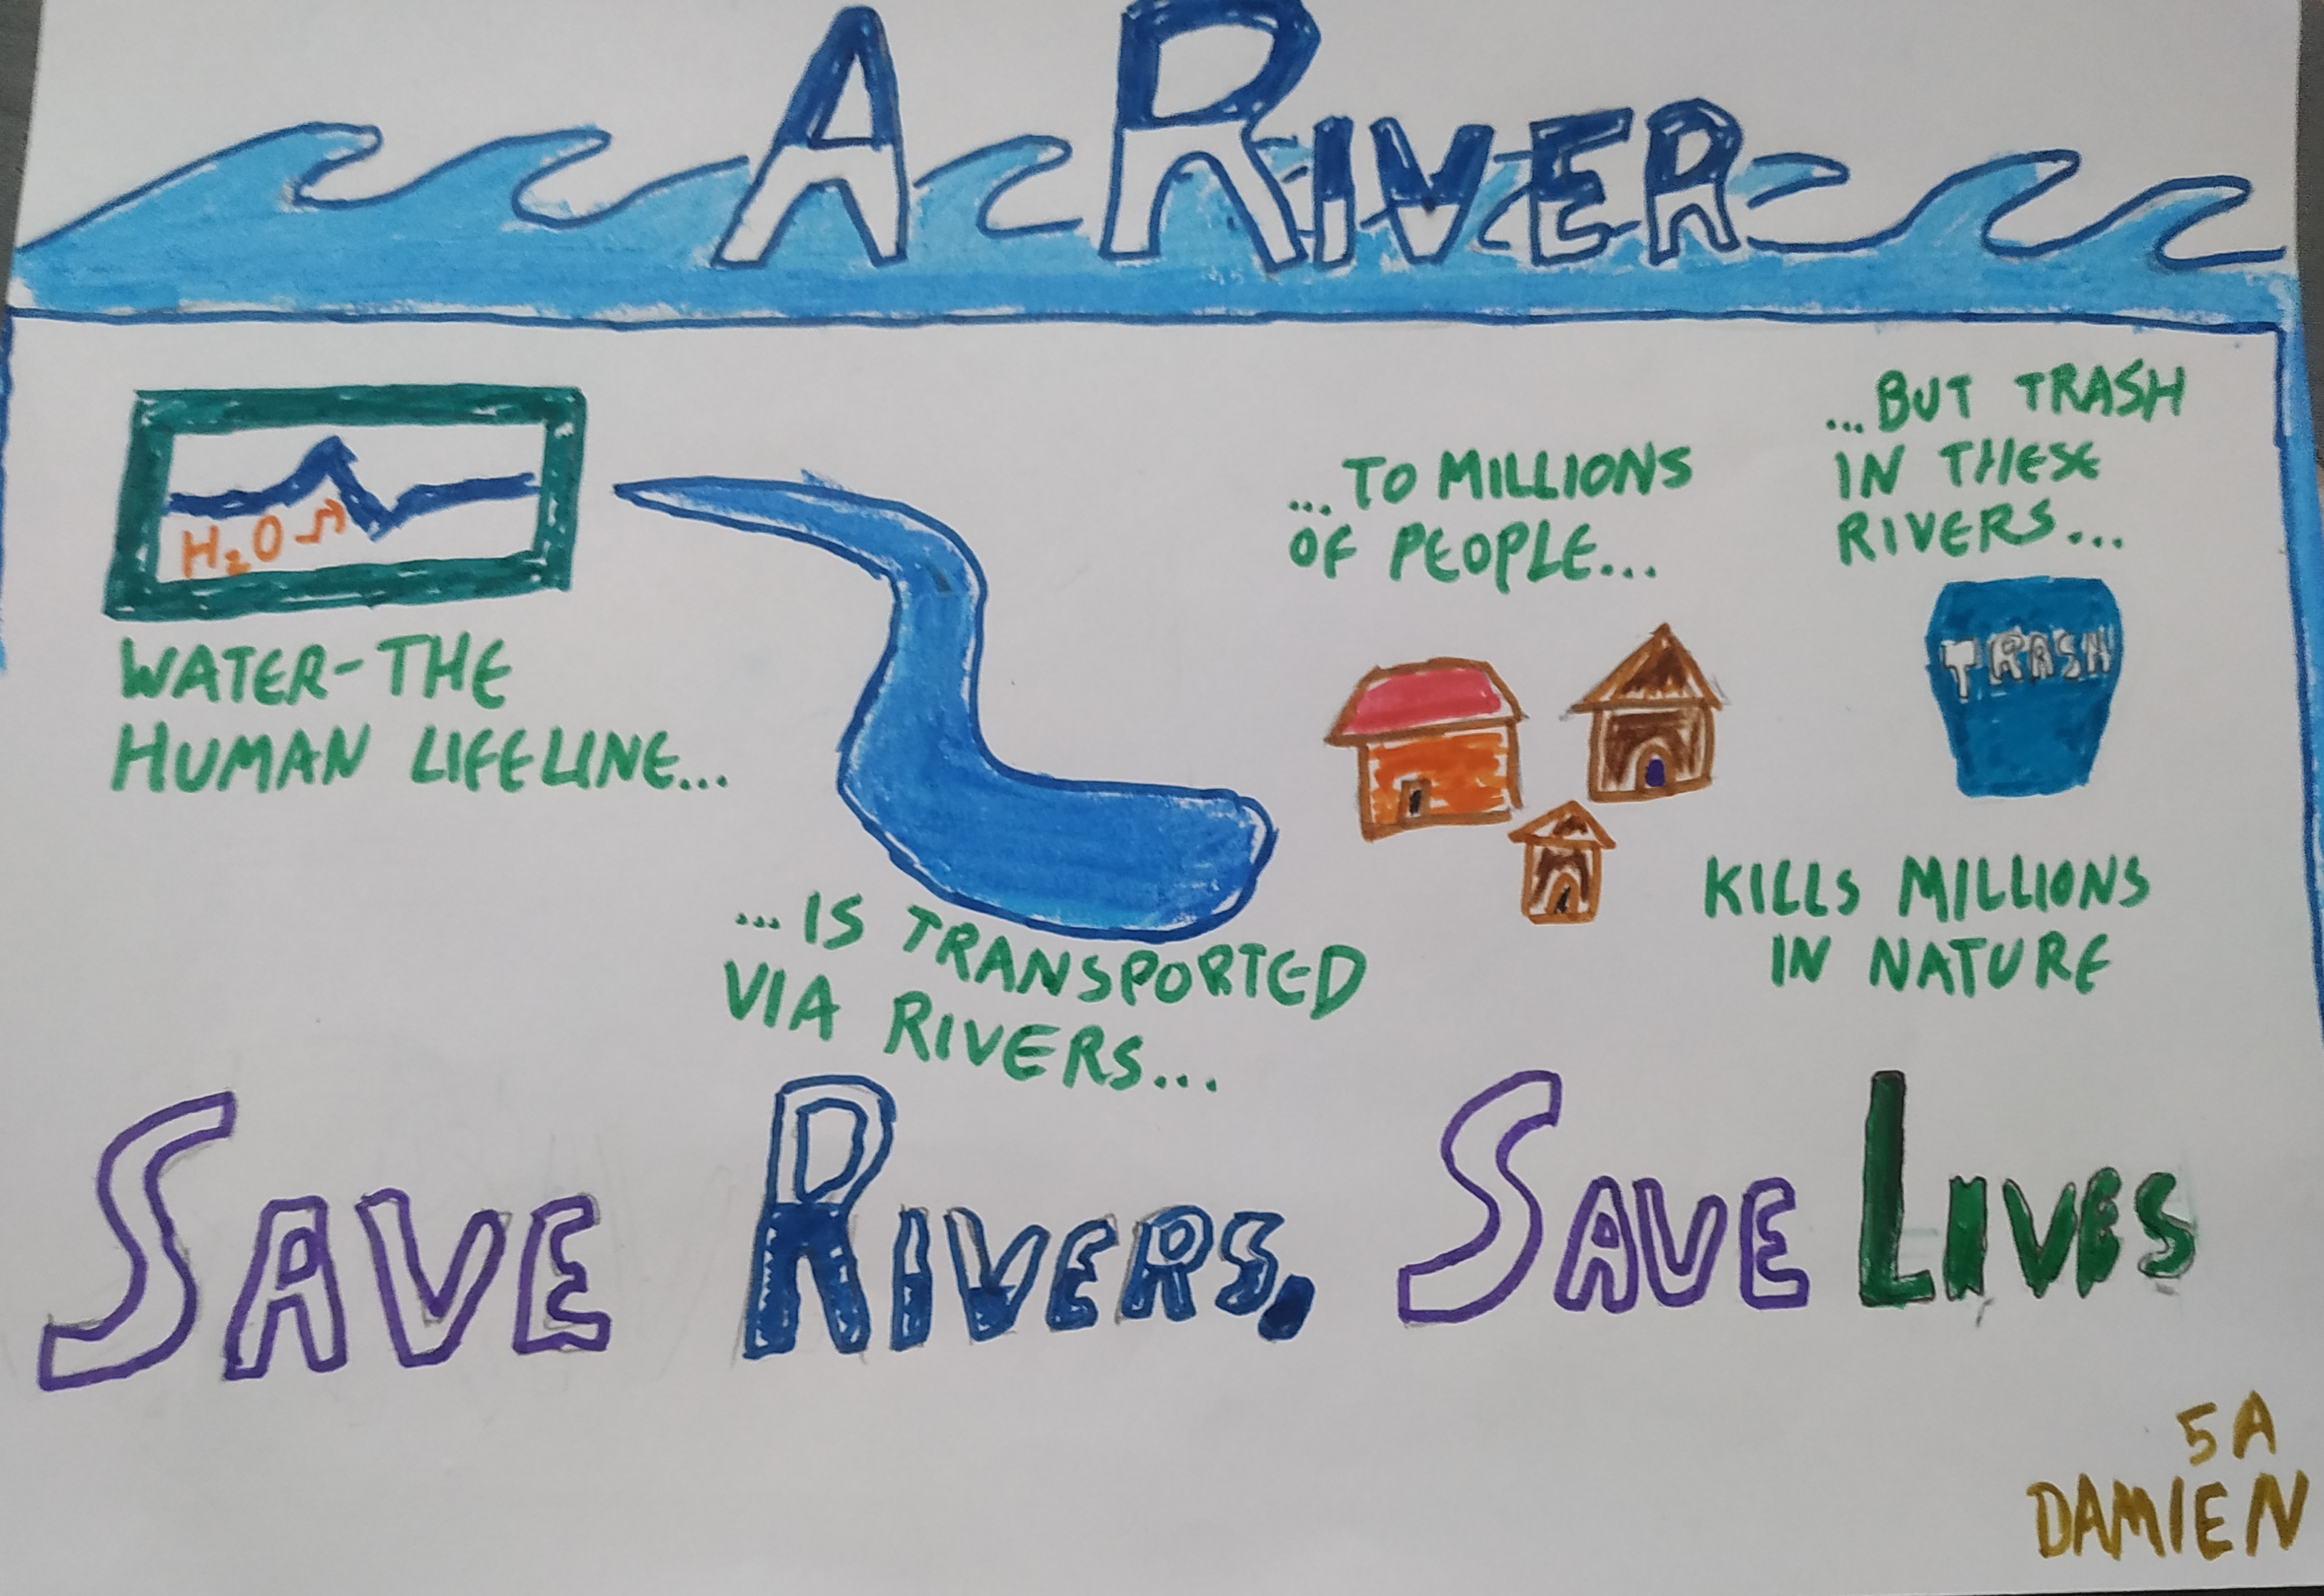 A RIVER
H₂O
WATER-THE
HUMAN LIFELINE...
...IS TRANSPORTED
VIA RIVERS...
...TO MILLIONS
OF PEOPLE...
...BUT TRASH
IN THESE
RIVERS...
TRASH
KILLS MILLIONS
IN NATURE
SAVE RIVERS, SAVE LIVES
5A
DAMIEN